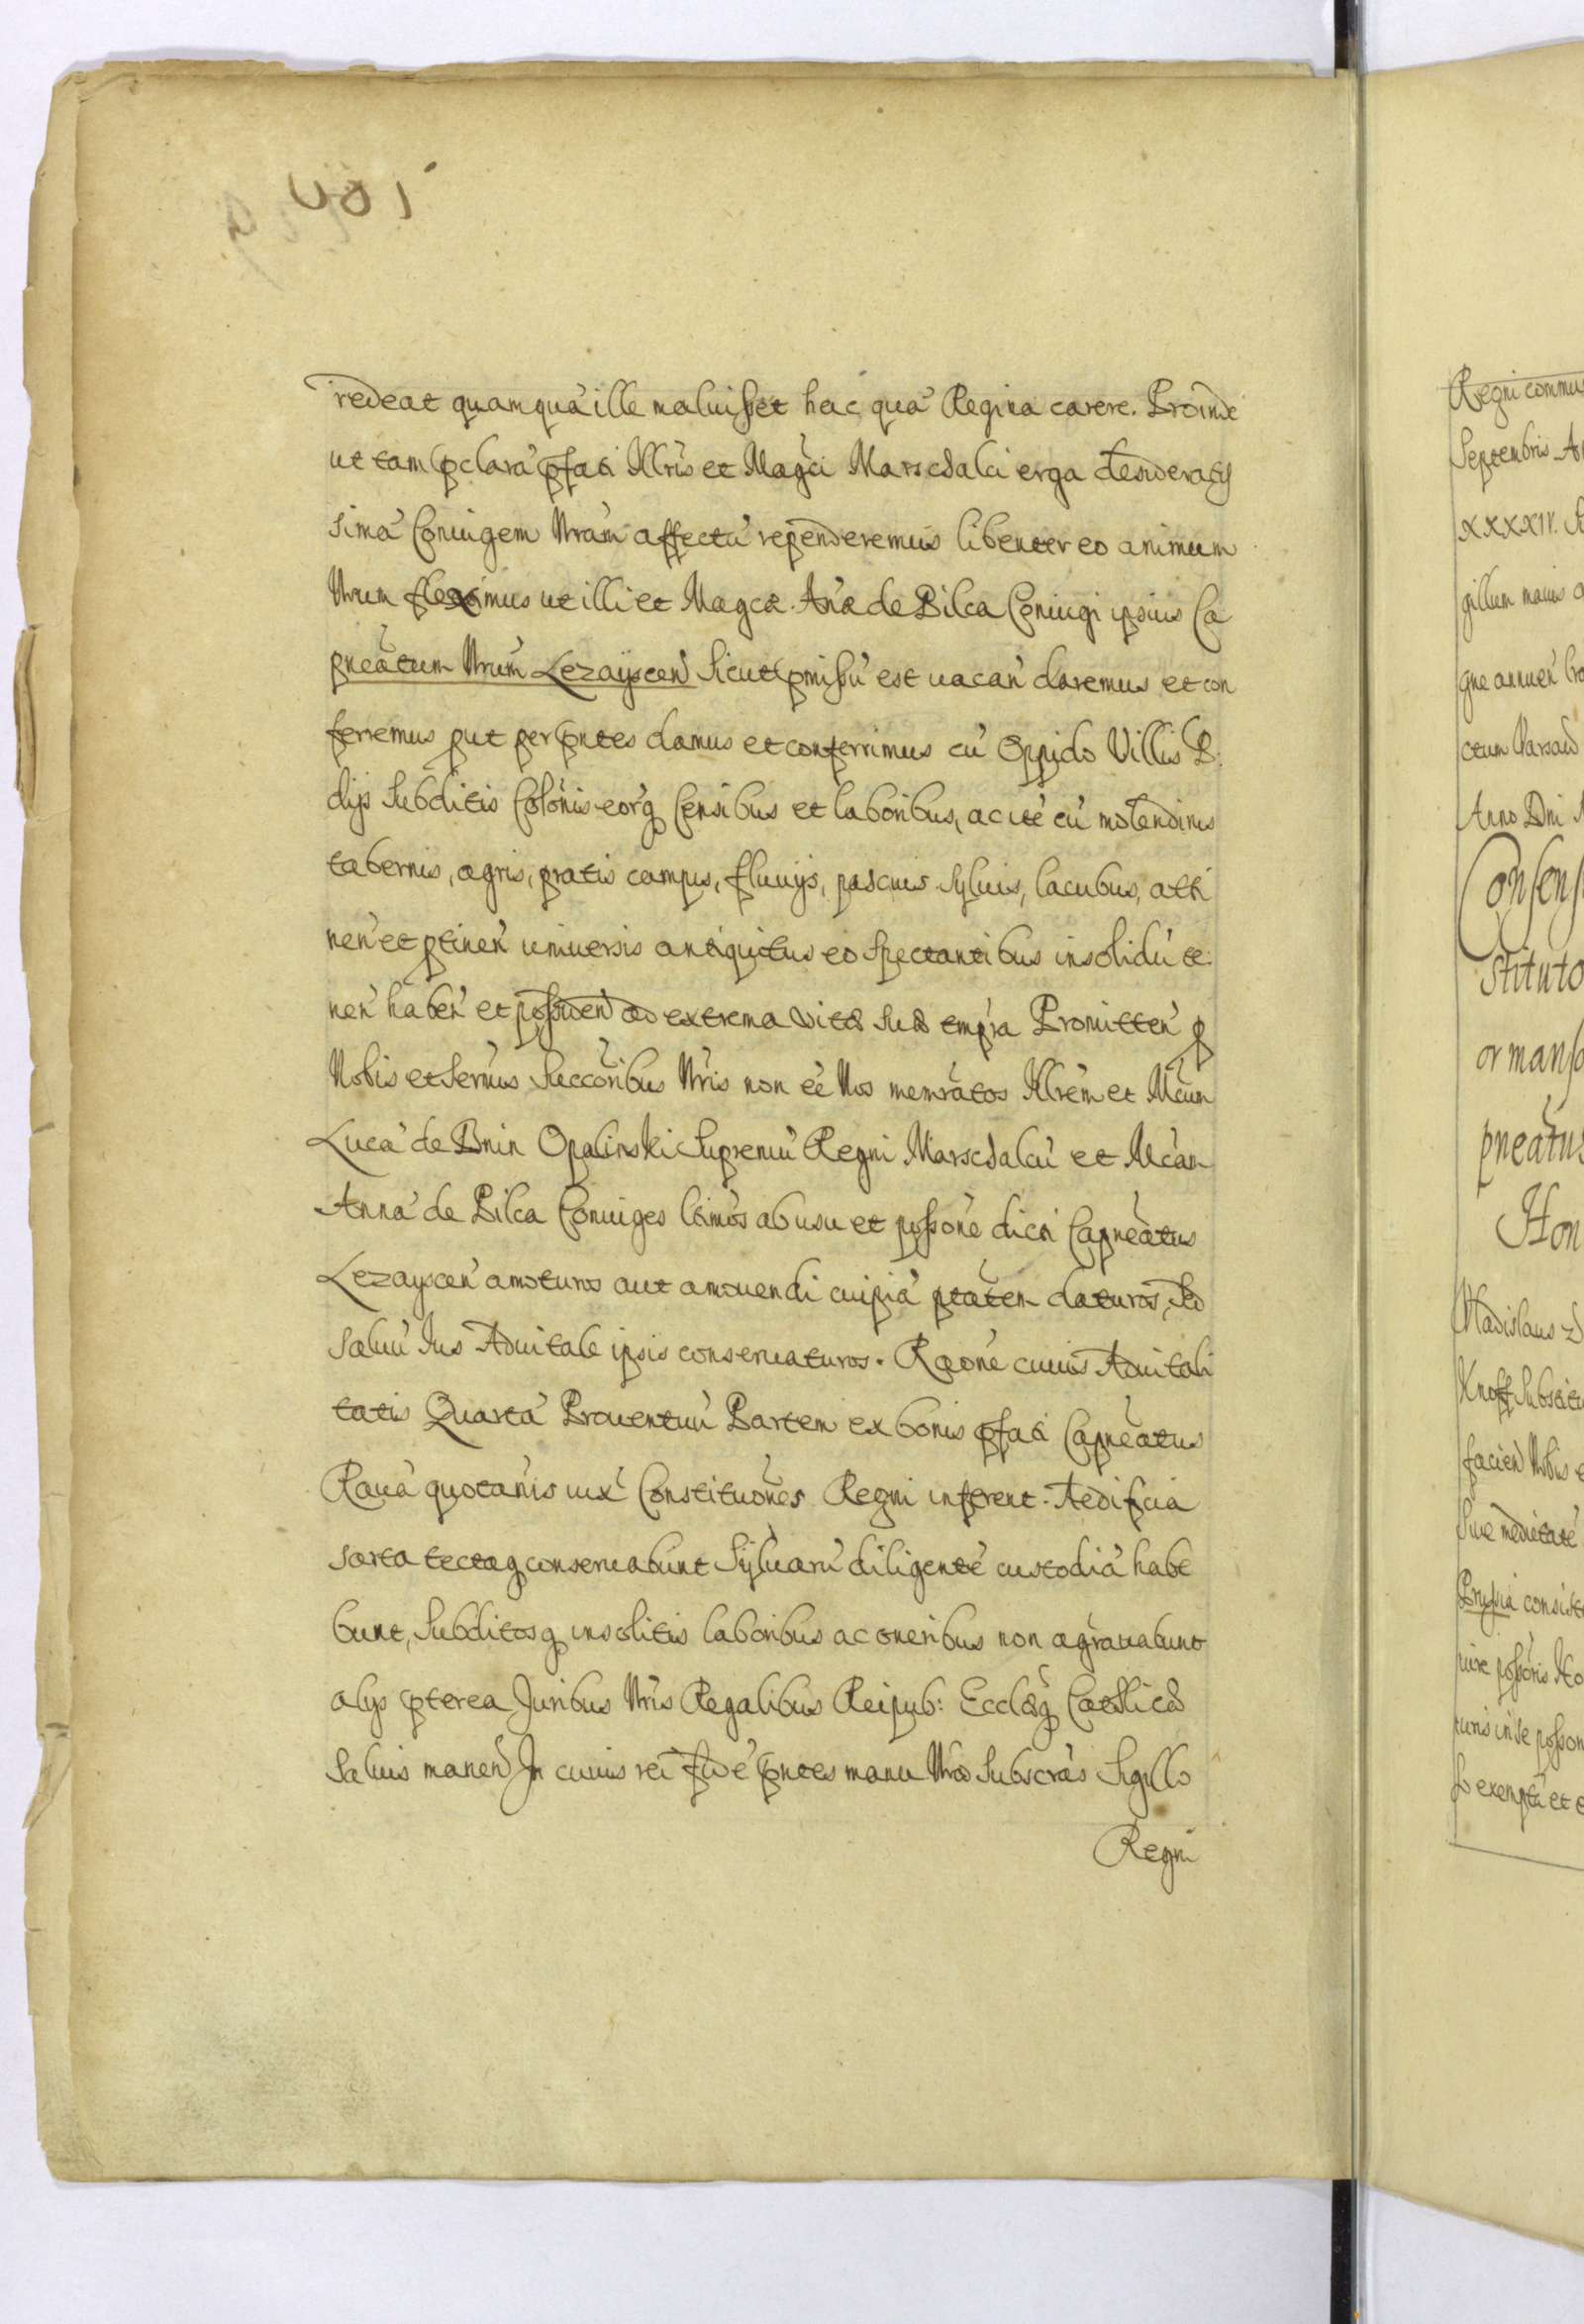 redeat quamquà ille maluisset hac quà Regina carere. Proinde
ut tam pclarà pfati Illris et Magci Marschalci erga desideratis
simà Coniugem Nram affectù rependeremus libenter eo animum
Nrum fleximus ut illi et Magcæ Annæ de Pilca Coniugi ipsius Ca
pneatum Nrum Lezayscen Sicut pmissù est vacan daremus et con
ferremus put per pntes damus et conferrimus cù Oppido Villis P:
dijs Subditis Colonis eorq Censibus et laboribus, ac itè cù molendinis
tabernis, agris, pratis campis, fluuijs, pascuis Syluis, lacubus, atti
nen et ptinen universis antiquitus eo Spectantibus insolidù te:
nen haben et possiden ad extrema vitæ suæ tempra Promitten p
Nobis et Sernis Succoribus Nris non eè Nos memratos Illrem et Mcum
Lucà de Bnin Opalinski Supremù Regni Marschalcù et Mcam
Annà de Pilca Coniuges ltimos ab usu et possone dicti Capneatus
Lezayscen amoturos aut amouendi cuipià ptatem daturos, Sed
Saluù Jus Aduitale ipsis conseruaturos. Raone cuius Aduitali
tatis Quartà Prouentuù Partem ex bonis pfati Capneatus
Rauà quotanis iuxt Constituones Regni inferent. Aedificia
sarta tectaq conseruabunt Syluarù diligentè custodià habe
bunt, Subditosq insolitis laboribus ac oneribus non agrauabunt
alys pterea Juribus Nris Regalibus Reipub: Ecclæq Catholicæ
Saluis manen In cuius rei fidè pntes manu Nra Subscras Sigillo
Regni
Regni commu
Septembris
XXXXIV.
gillum maius
Anno Dni
Consens
stituto
or manso
pneatus
Hon
Vladislaus
Knoff
facien Nobis
Siue medietatè
Prussia consist